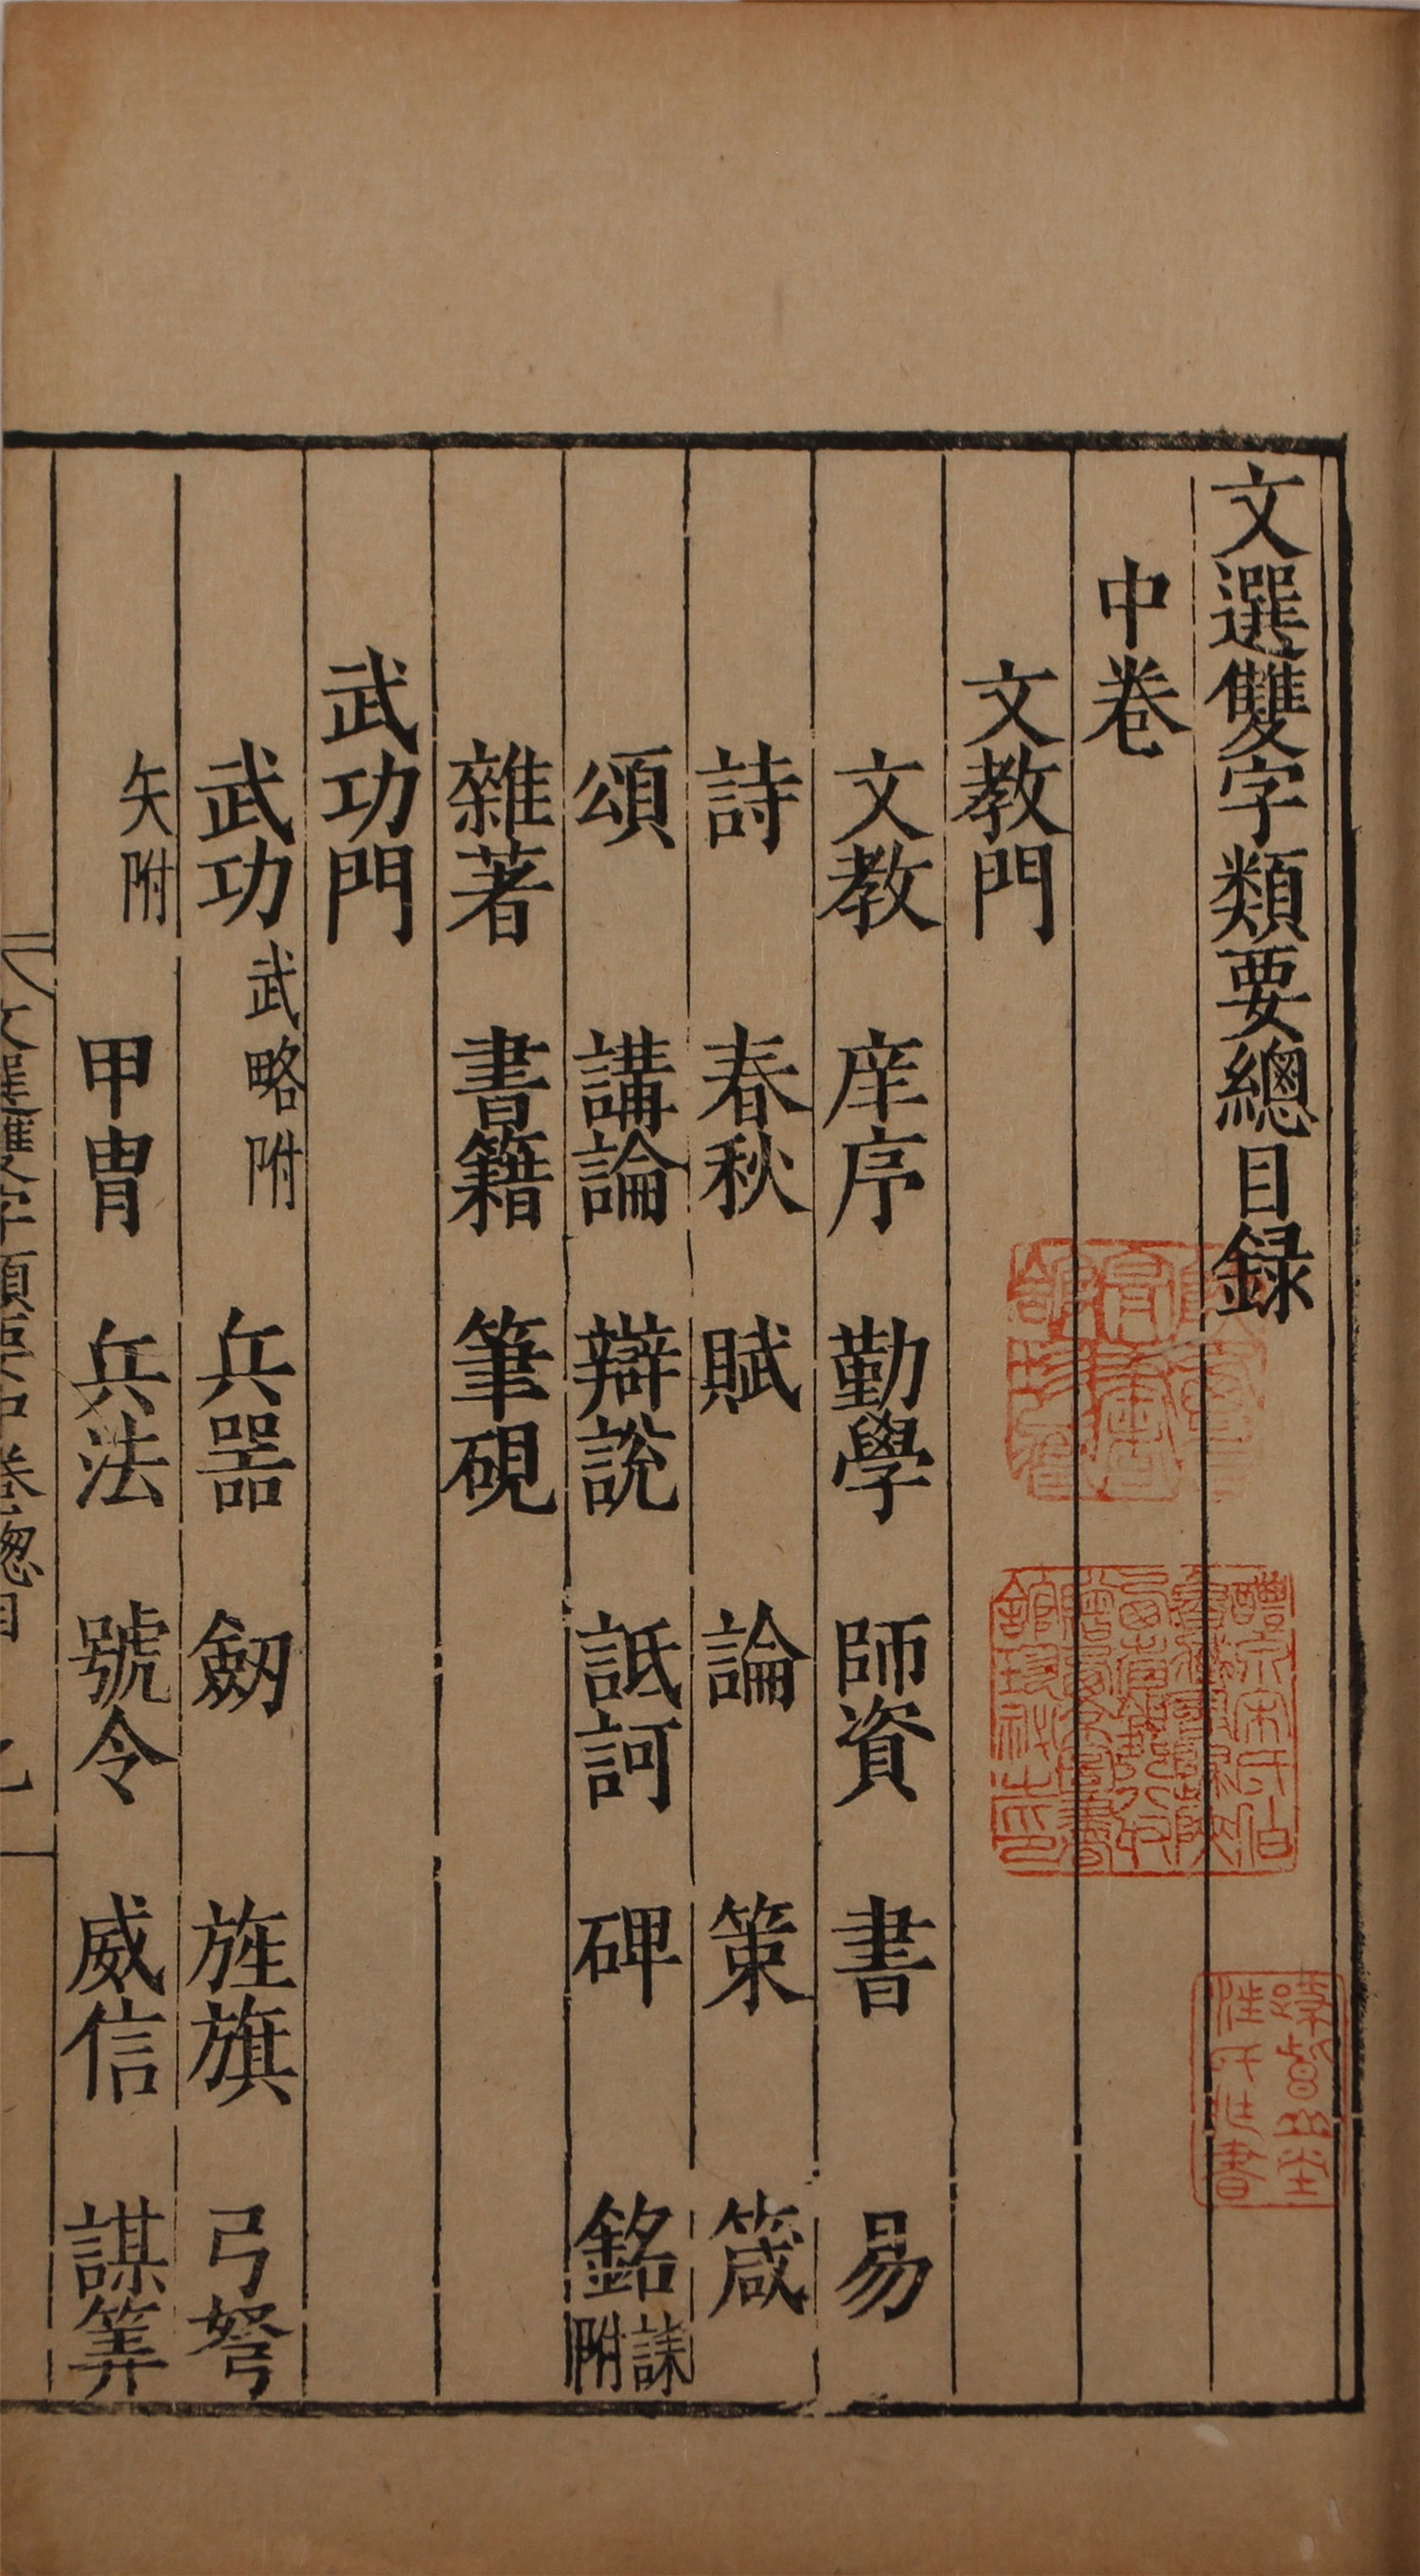 文選雙字類要總目録
中卷
文教門
文教　庠序　勤學　師資　書　易
詩　春秋　賦　論　策　箴
頌　講論　辯說　詆訶　碑　銘誄附
雜著　書籍　筆硯
武功門
武功武略附　兵器　劒　旌旗　弓弩
矢附　甲冑　兵法　號令　威信　謀筭